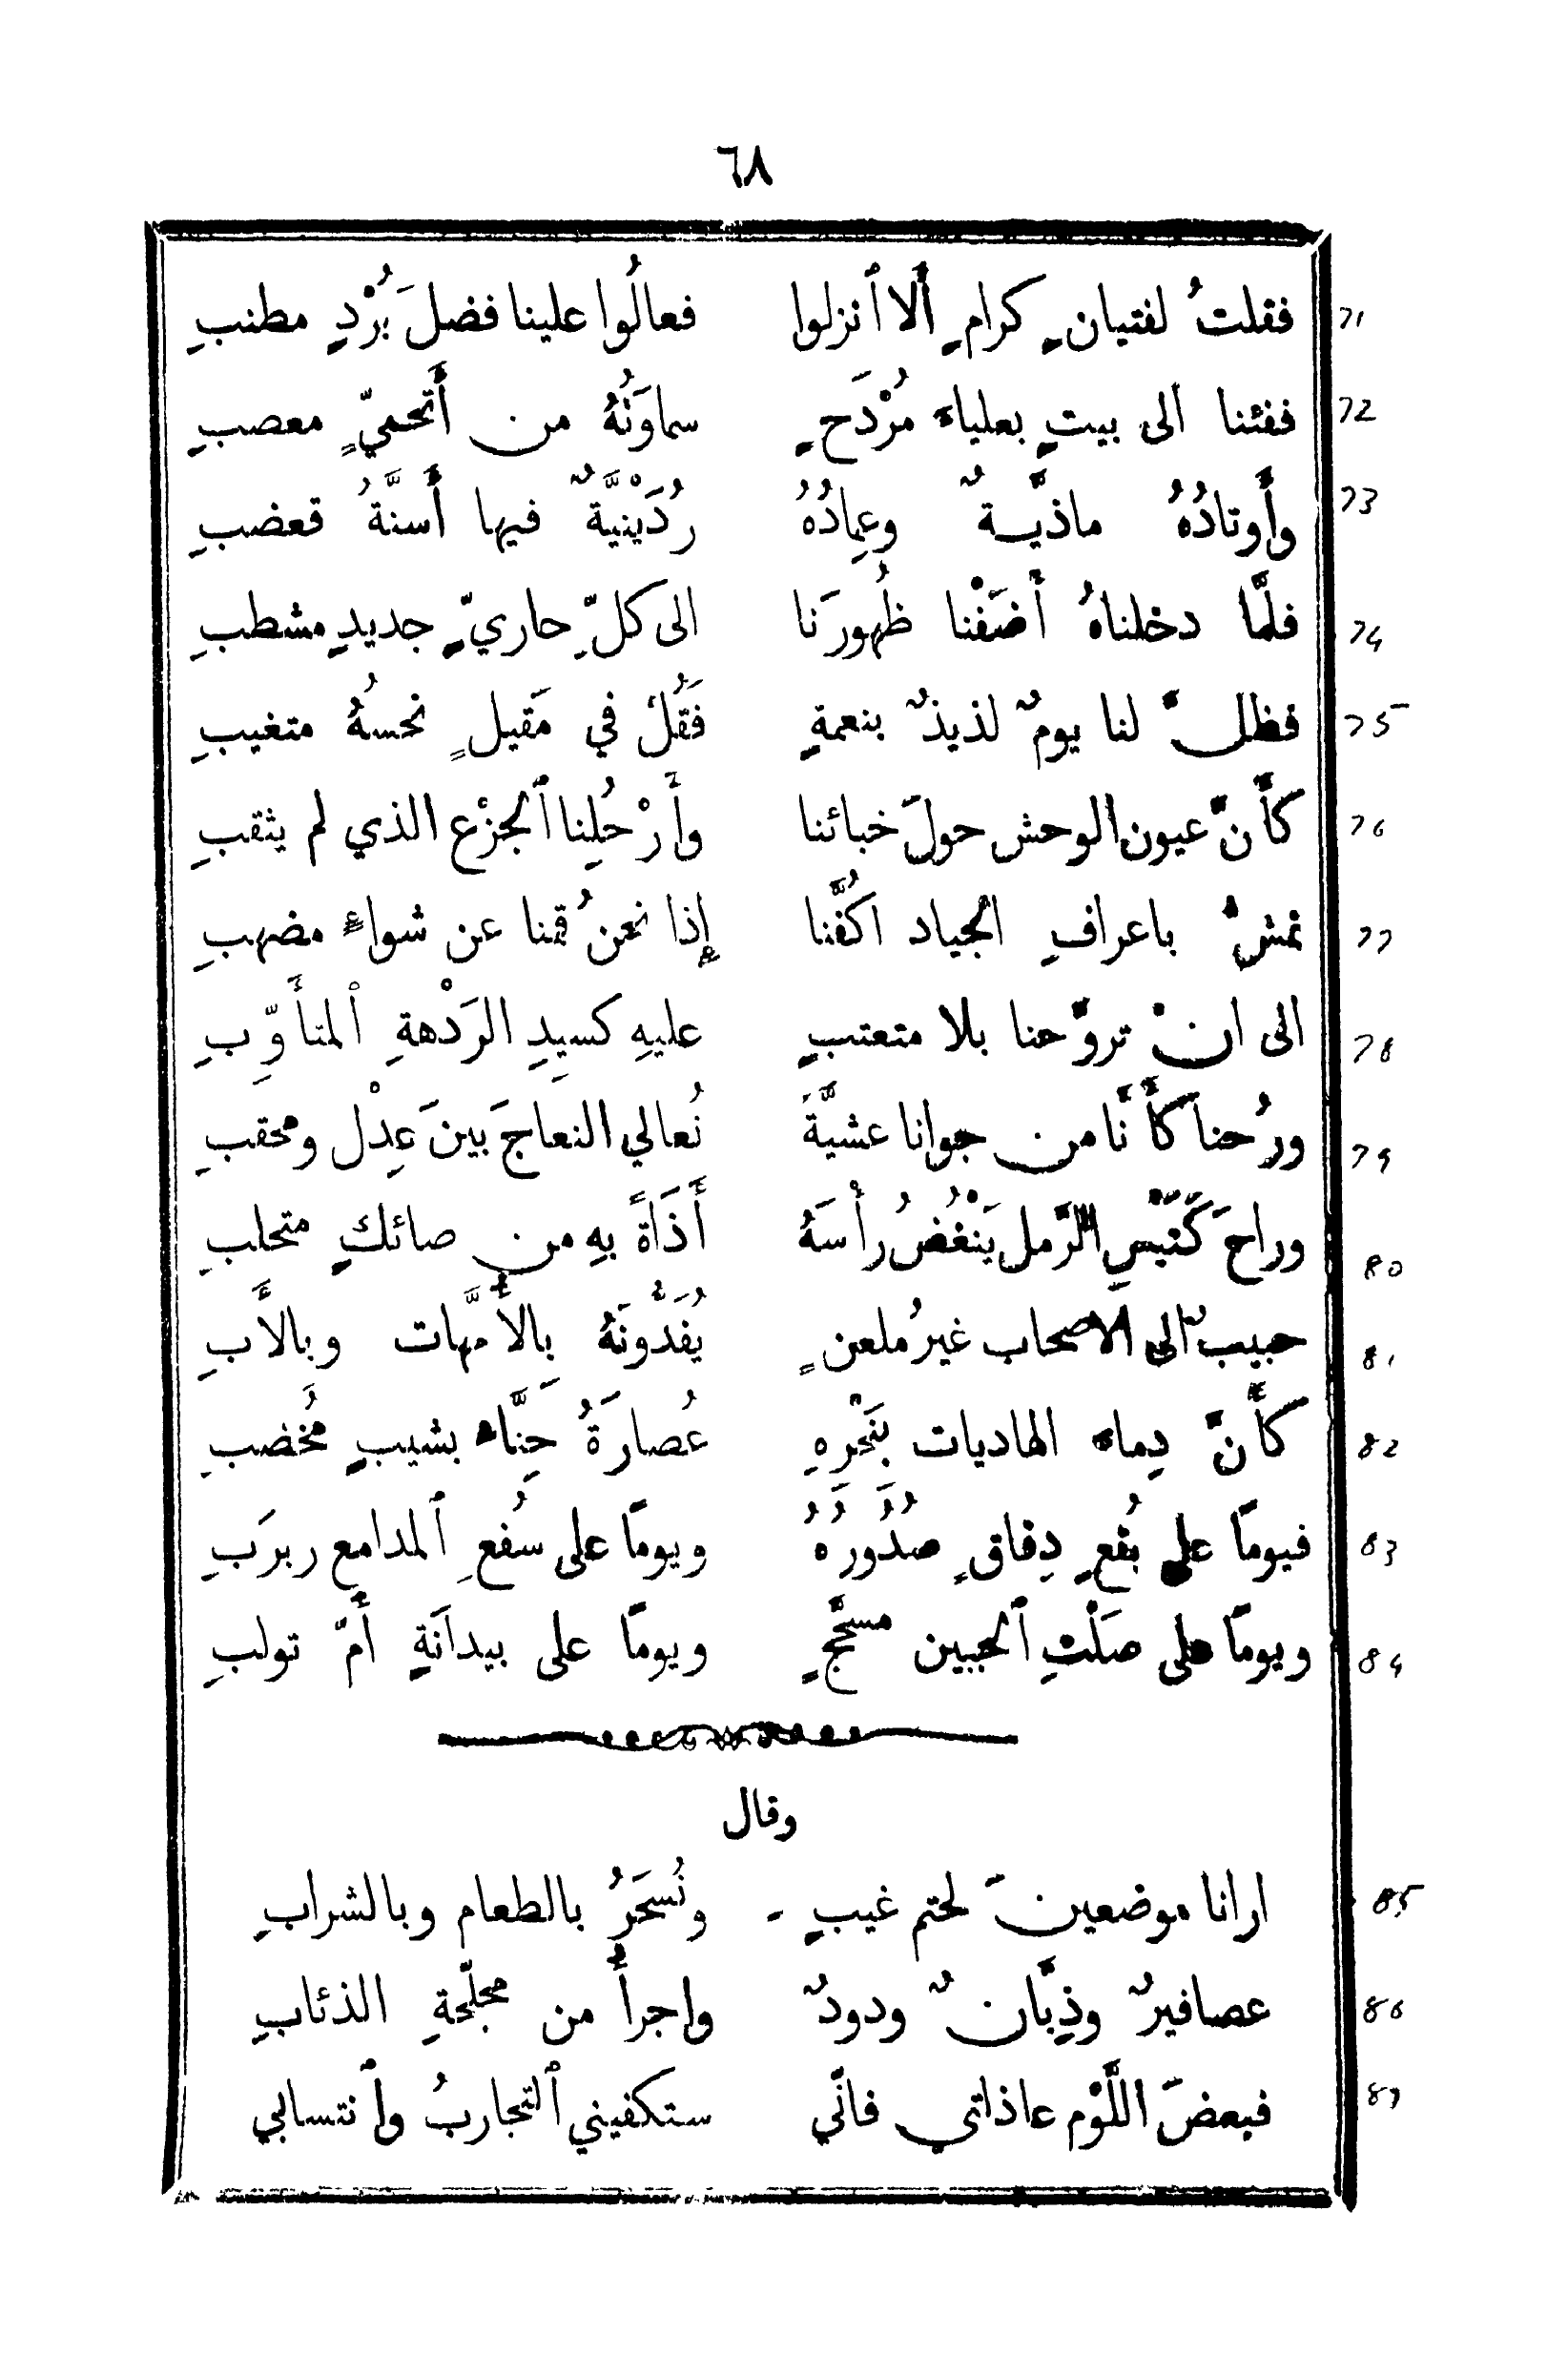 ٦٨
فقلتُ لفتيانٍ كرامٍ أَلا ٱنزلوا فعالُوا علينا فضلَ بُرْدٍ مطنبِ 71
ففئنا الى بيتٍ بعلياء مُرْدَحٍ سماوَتُهُ من أَتحميٍّ معصبِ 72
وأَوتادُهُ ماذيّةٌ وعِمادُهُ رُدَيْنيَّةٌ فيها أَسنَّةُ قعضبِ 73
فلَّما دخلناهُ أَضَفْنا ظُهورَنا الى كلِّ حاريٍّ جديدٍ مشطبِ 74
فظلَّ لنا يومٌ لذيذٌ بنعمةٍ فَقُلْ في مَقيلٍ نحسهُ متغيبِ 75
كأَنَّ عيون الوحش حولَ خبائنا وأَرْحُلِنا ٱلجزْع الذي لم يثقبِ 76
نمشُّ باعرافِ الجياد اكُفَّنا إِذا نحنُ قمنا عن شواءٍ مضهبِ 77
الى انْ تروَّحنا بلا متعتبٍ عليهِ كسيدِ الرَدْهةِ ٱلمتأَوِّبِ 78
ورُحنا كأَنَّا من جواثا عشيَّةً نُعالي النعاجَ بينَ عِدْل ومحقبِ 79
وراحَ كَتَيْسِ الرَّمل يَنْغُضُ رأْسَهُ أَذَاةً بهِ من صائكٍ متحلبِ 80
حبيبٌ الى الاصحاب غيرُ ملعنٍ يُفَدُّونَهُ بِالأُمَّهات وبالأَبِ 81
كأَنَّ دِماء الهاديات بنَحْرِهِ عُصارَةُ حِنَّاء بشيبٍ مُخَضبِ 82
فيومًا على بُقعٍ دِقاقٍ صُدُورُهُ ويومًا على سُفعِ ٱلمدامع ربرَبِ 83
ويومًا على صَلْتِ ٱلجبين مسحَّجٍ ويومًا على بيدانَةٍ أُمِّ تولبِ 84
وقال
ارانا موضعينَ لحتم غيبٍ ونُسحَرُ بالطعام وبالشرابِ 85
عصافيرٌ وذِبَّانٌ ودودٌ واجرأُ من مجلّحةِ الذئابِ 86
فبعضَ اللَّوْم عاذلتي فانّي ستكفيني ٱلتجاربُ وٱنتسابي 87